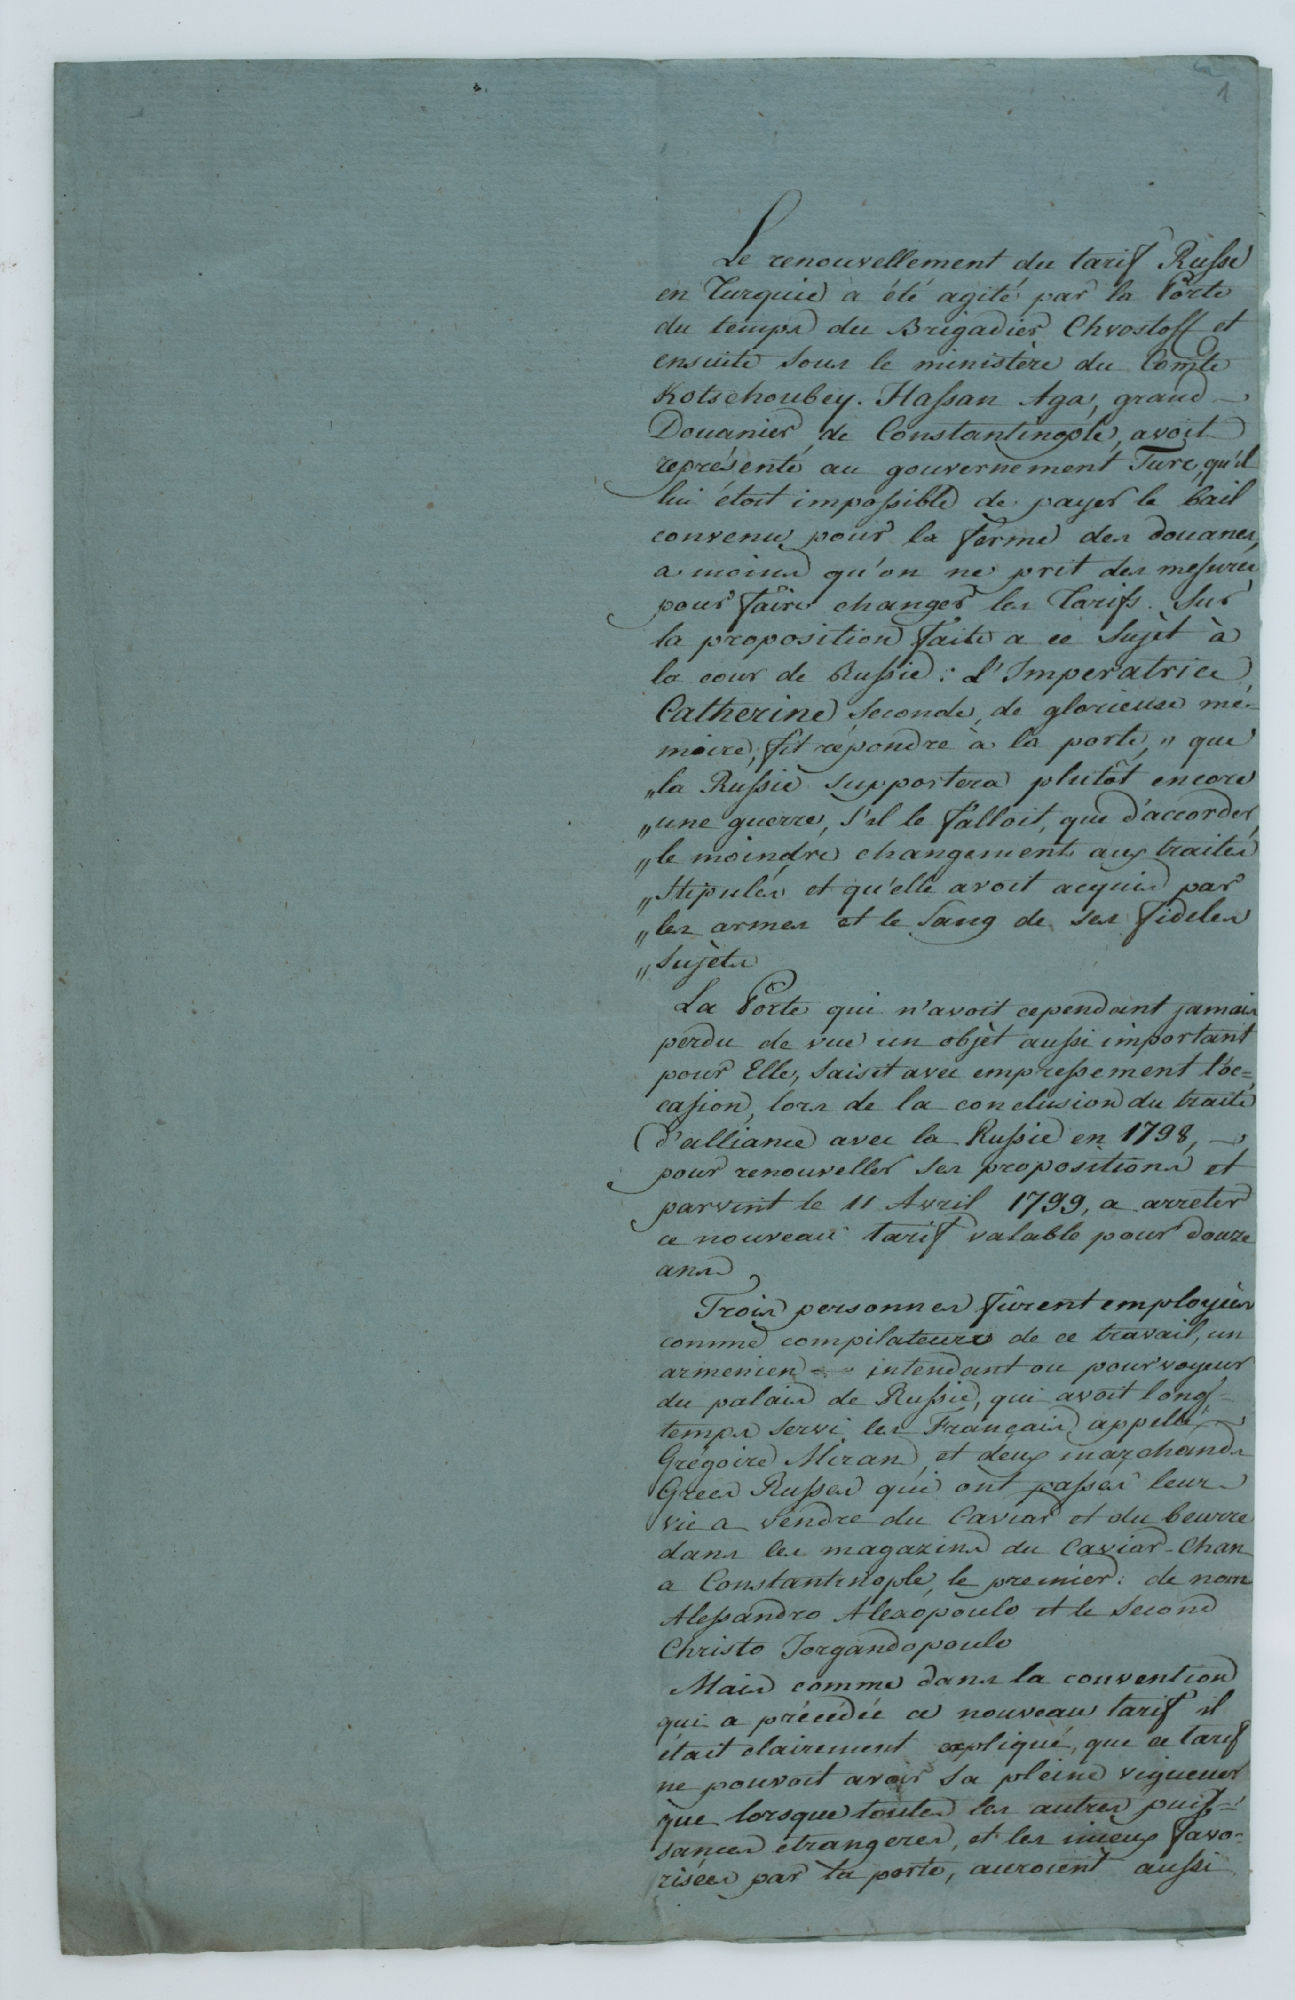 1
Le renouvellement du tarif Russe
en Turquie a été agité par la Porte
du temps du Brigadier Chvostoff et
ensuite sous le ministère du Comte
Kotschoubey. Hassan Aga, grand
Douanier de Constantinople, avoit
représenté au gouvernement Turc, qu'il
lui étoit impossible de payer le bail
convenu pour la ferme des douanes,
a moins qu'on ne prit des mesures
pour faire changer les Tarifs. Sur
la proposition faite a ce Sujèt à
la cour de Russie: L'Imperatrice
Catherine Seconde, de glorieuse mé-
moire, fit répondre à la porte, „ que
„la Russie supportera plutôt encore
„une guerre, s'il le falloit, que d'accorder
„le moindre changement aux traités
„Stipulés et qu'elle avoit acquis par
„les armes et le Sang de ses fideles
„Sujèts
La Porte qui n'avoit cependant jamais
perdu de vue un objèt aussi important
pour Elle, Saisit avec empressement l'oc=
casion, lors de la conclusion du traité
d'alliance avec la Russie en 1798,
pour renouveller ses propositions et
parvint le 11 Avril 1799, a arreter
ce nouveau tarif valable pour douze
ans
Trois personnes fûrent employées
comme compilateurs de ce travail, un
armenien intendant ou pourvoyeur
du palais de Russie, qui avoit long-
temps servi les Français, appellé
Grégoire Miran, et deux marchands
Grecs Russes qui ont passés leur
vie a vendre du Caviar et du beurre
dans les magazins du Caviar-Chan
a Constantinople, le premier: de nom
Alessandro Alexopoulo et le Second
Christo Jorgandopoulo
Mais comme dans la convention
qui a précédée ce nouveau tarif il
était clairement expliqué, que ce tarif
ne pouvoit avoir sa pleine vigueur
que lorsque toutes les autres puis-
sances étrangeres, et les mieux favo-
risées par la porte, auroient aussi